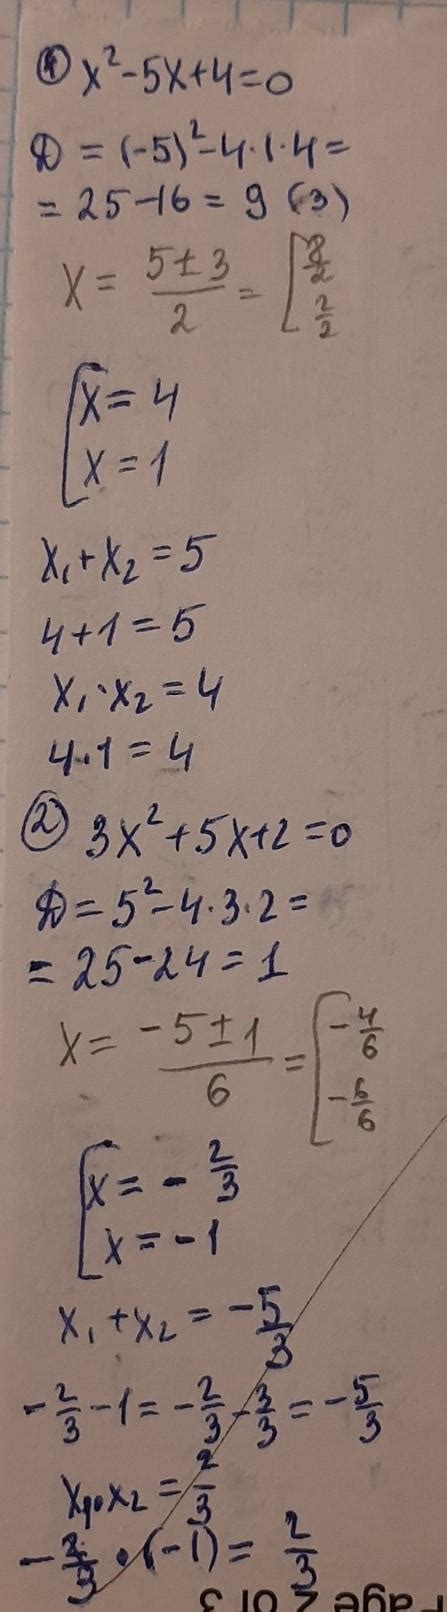 ① x² - 5x + 4 = 0
D = (-5)² - 4·1·4 =
= 25 - 16 = 9 (3)
x = (5 ± 3)/2 = [ 8/2
2/2
[ x = 4
x = 1
x₁ + x₂ = 5
4 + 1 = 5
x₁ · x₂ = 4
4 · 1 = 4
② 3x² + 5x + 2 = 0
D = 5² - 4·3·2 =
= 25 - 24 = 1
x = (-5 ± 1)/6 = [ -4/6
-6/6
[ x = - 2/3
x = -1
x₁ + x₂ = -5/3
-2/3 - 1 = -2/3 - 3/3 = -5/3
x₁ · x₂ = 2/3
-2/3 · (-1) = 2/3
age 2 of 3